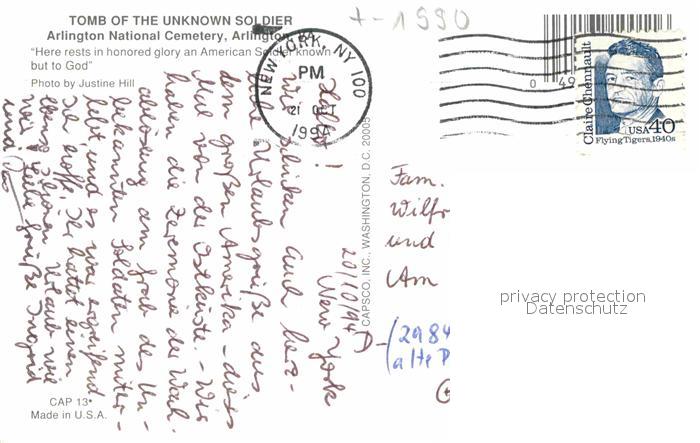 TOMB OF THE UNKNOWN SOLDIER
Arlington National Cemetery, Arlington,
"Here rests in honored glory an American Soldier known
but to God"
Photo by Justine Hill
+-1990
NEW YORK, NY 100
PM
21 OCT
1994
0 49
Claire Chennault
USA 40
Flying Tigers, 1940s
New York
20/10/94
Hallo!
Wir schicken Euch herz-
liche Urlaubsgrüße aus
dem großen Amerika - dieses
Mal von der Ostküste. - Wir
haben die Zeremonie der Wach-
ablösung am Grab des Un-
bekannten Soldaten miter-
lebt, und es war ergreifend
Ihr hattet einen
Urlaub wie
wir. Liebe Grüße Ingrid
und
CAPSCO, INC., WASHINGTON, D.C. 20005
Fam.
Wilfr
und
Am
D-
(2984
(alte P
privacy protection
Datenschutz
CAP 13
Made in U.S.A.